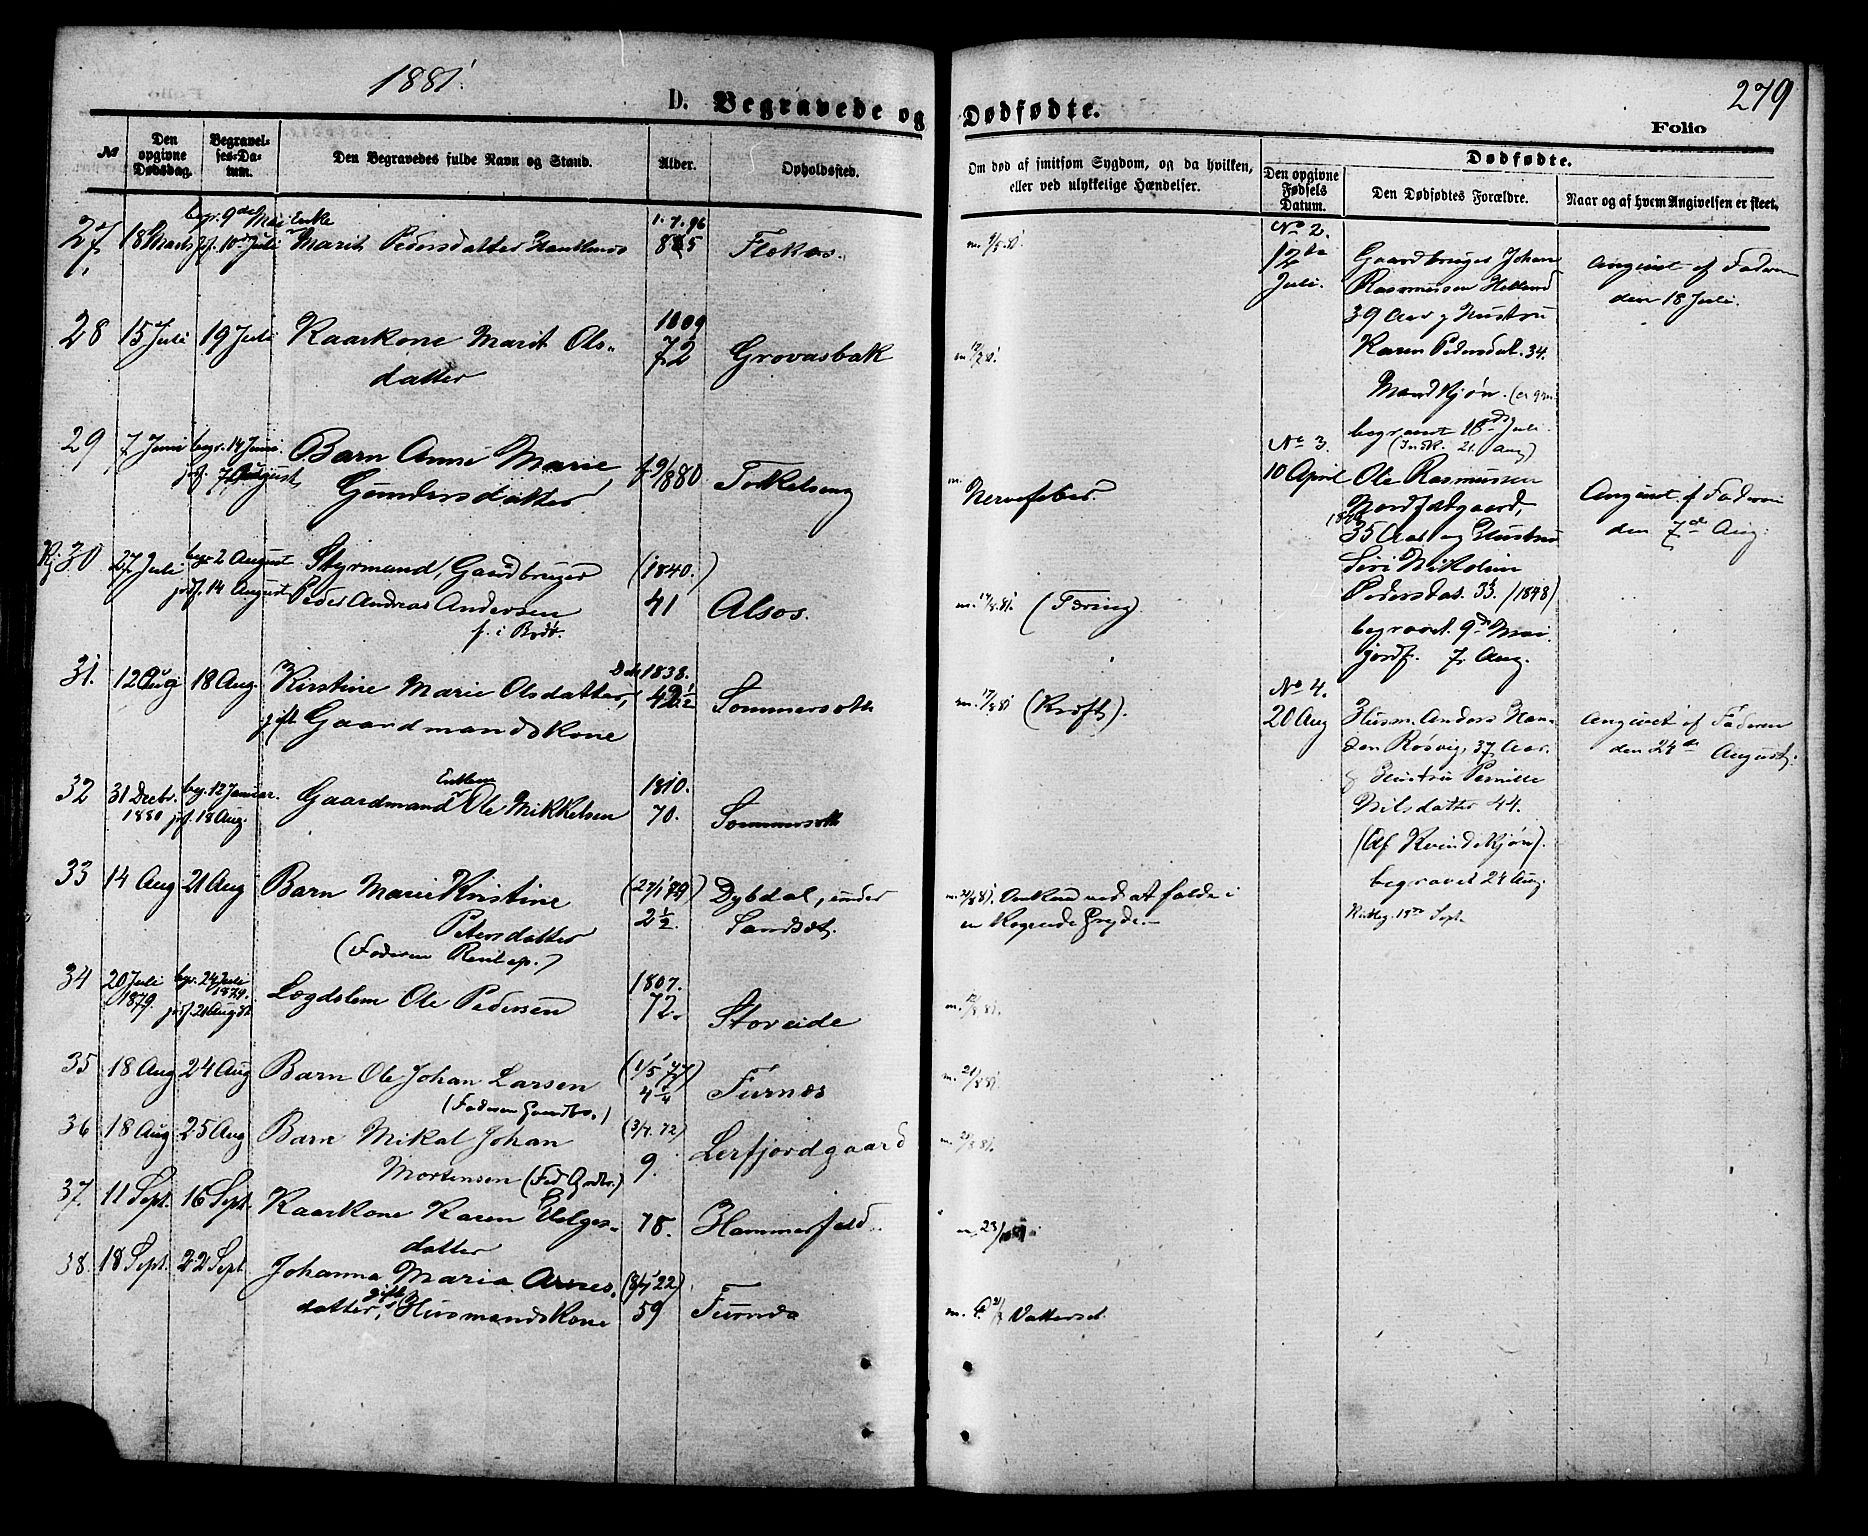 1881.
279
D. Begravede og Dødfødte.
Folio
№
Den opgivne Dødsdag.
Begravelses-Datum.
Den Begravedes fulde Navn og Stand.
Alder.
Opholdssted.
Om død af smitsom Sygdom, og da hvilken, eller ved ulykkelige Hændelser.
Dødfødte.
Den opgivne Fødsels Datum.
Den Dødfødtes Forældre.
Naar og af hvem Angivelsen er skeet.
27, 18 Marts begr. 9de Mai jf. 10de Juli Enke
Marit Pedersdatter 1.7.96
85 Flekas.
28 15 Juli 19 Juli Kaarkone Marit Ols-
datter 1809
72 Grovasbak
29 7 Juni begr. 14 Juni
jordf. 7 August Barn Anne Marie
Gundersdatter f. 9/8 80 Nervefeber
30 27 Juli begr. 2 August
jordf. 14 August Styrmand, Gaardbruger
Peder Andreas Andersen
f. i Bodø. (1840.)
41 Alsos. (Tæring).
31. 12 Aug 18 Aug. Kirstine Marie Olsdatter,
gift Gaardmandskone 1838.
42½ Sommerset (Kræft).
32 31 Decbr. 1880 begr. 12 Januar.
jf. 18 Aug. Gaardmand Enkem. Ole Mikkelsen 1810.
70. Sommerset
33 14 Aug 21 Aug Barn Marie Kristine
Petersdatter
(Faderen ) (27/1 79)
2½. Dybdal, under
Sandset. ved at falde i
en kogende Gryde.
34 20 Juli 1879. begr. 24 Juli 1879.
jordf. 21 August Lægdslem Ole Pedersen 1807.
72. Storeide
35 18 Aug 24 Aug Barn Ole Johan Larsen
(Faderen Gaardbr.) (1/5 77)
4¼ Furnes
36 18 Aug 25 Aug Barn Mikal Johan
Mortensen (Fad Grdbr.) (3/7. 72)
9. Lerfjordgaard
37. 11 Sept. 16 Sept. Kaarkone Karen Helges-
datter 78. Hammerfald. m. 23/10 81
38. 18 Sept. 22 Sept. Johanna Maria Arnes-
datter, gift Husmandskone 59 Furnes Vattersot.
No 2.
12te
Juli. Gaardbruger Johan
Rasmussen Helland
39 Aar og Hustru
Karen Pedersdat. 34.
Mandkjøn.
begravet 18de Juli
(Indk. 21. Aug) Angivet af Faderen
den 18 Juli.
No 3.
10 April Ole Rasmussen
Nordfjordgaard,
35 Aar og Hustru
Nikoline
Pedersdat. 33. (1848)
begravet. 9de Mai.
jordf. 7. Aug. Angivet af Faderen
den 7de Aug.
No 4.
20 Aug Husm. Anders Han-
sen Røsvig, 37 Aar.
& Hustru Pernille
Nilsdatter 44.
(Af Kvindekjøn).
begravet 24 Aug. Angivet af Faderen
den 24de August.